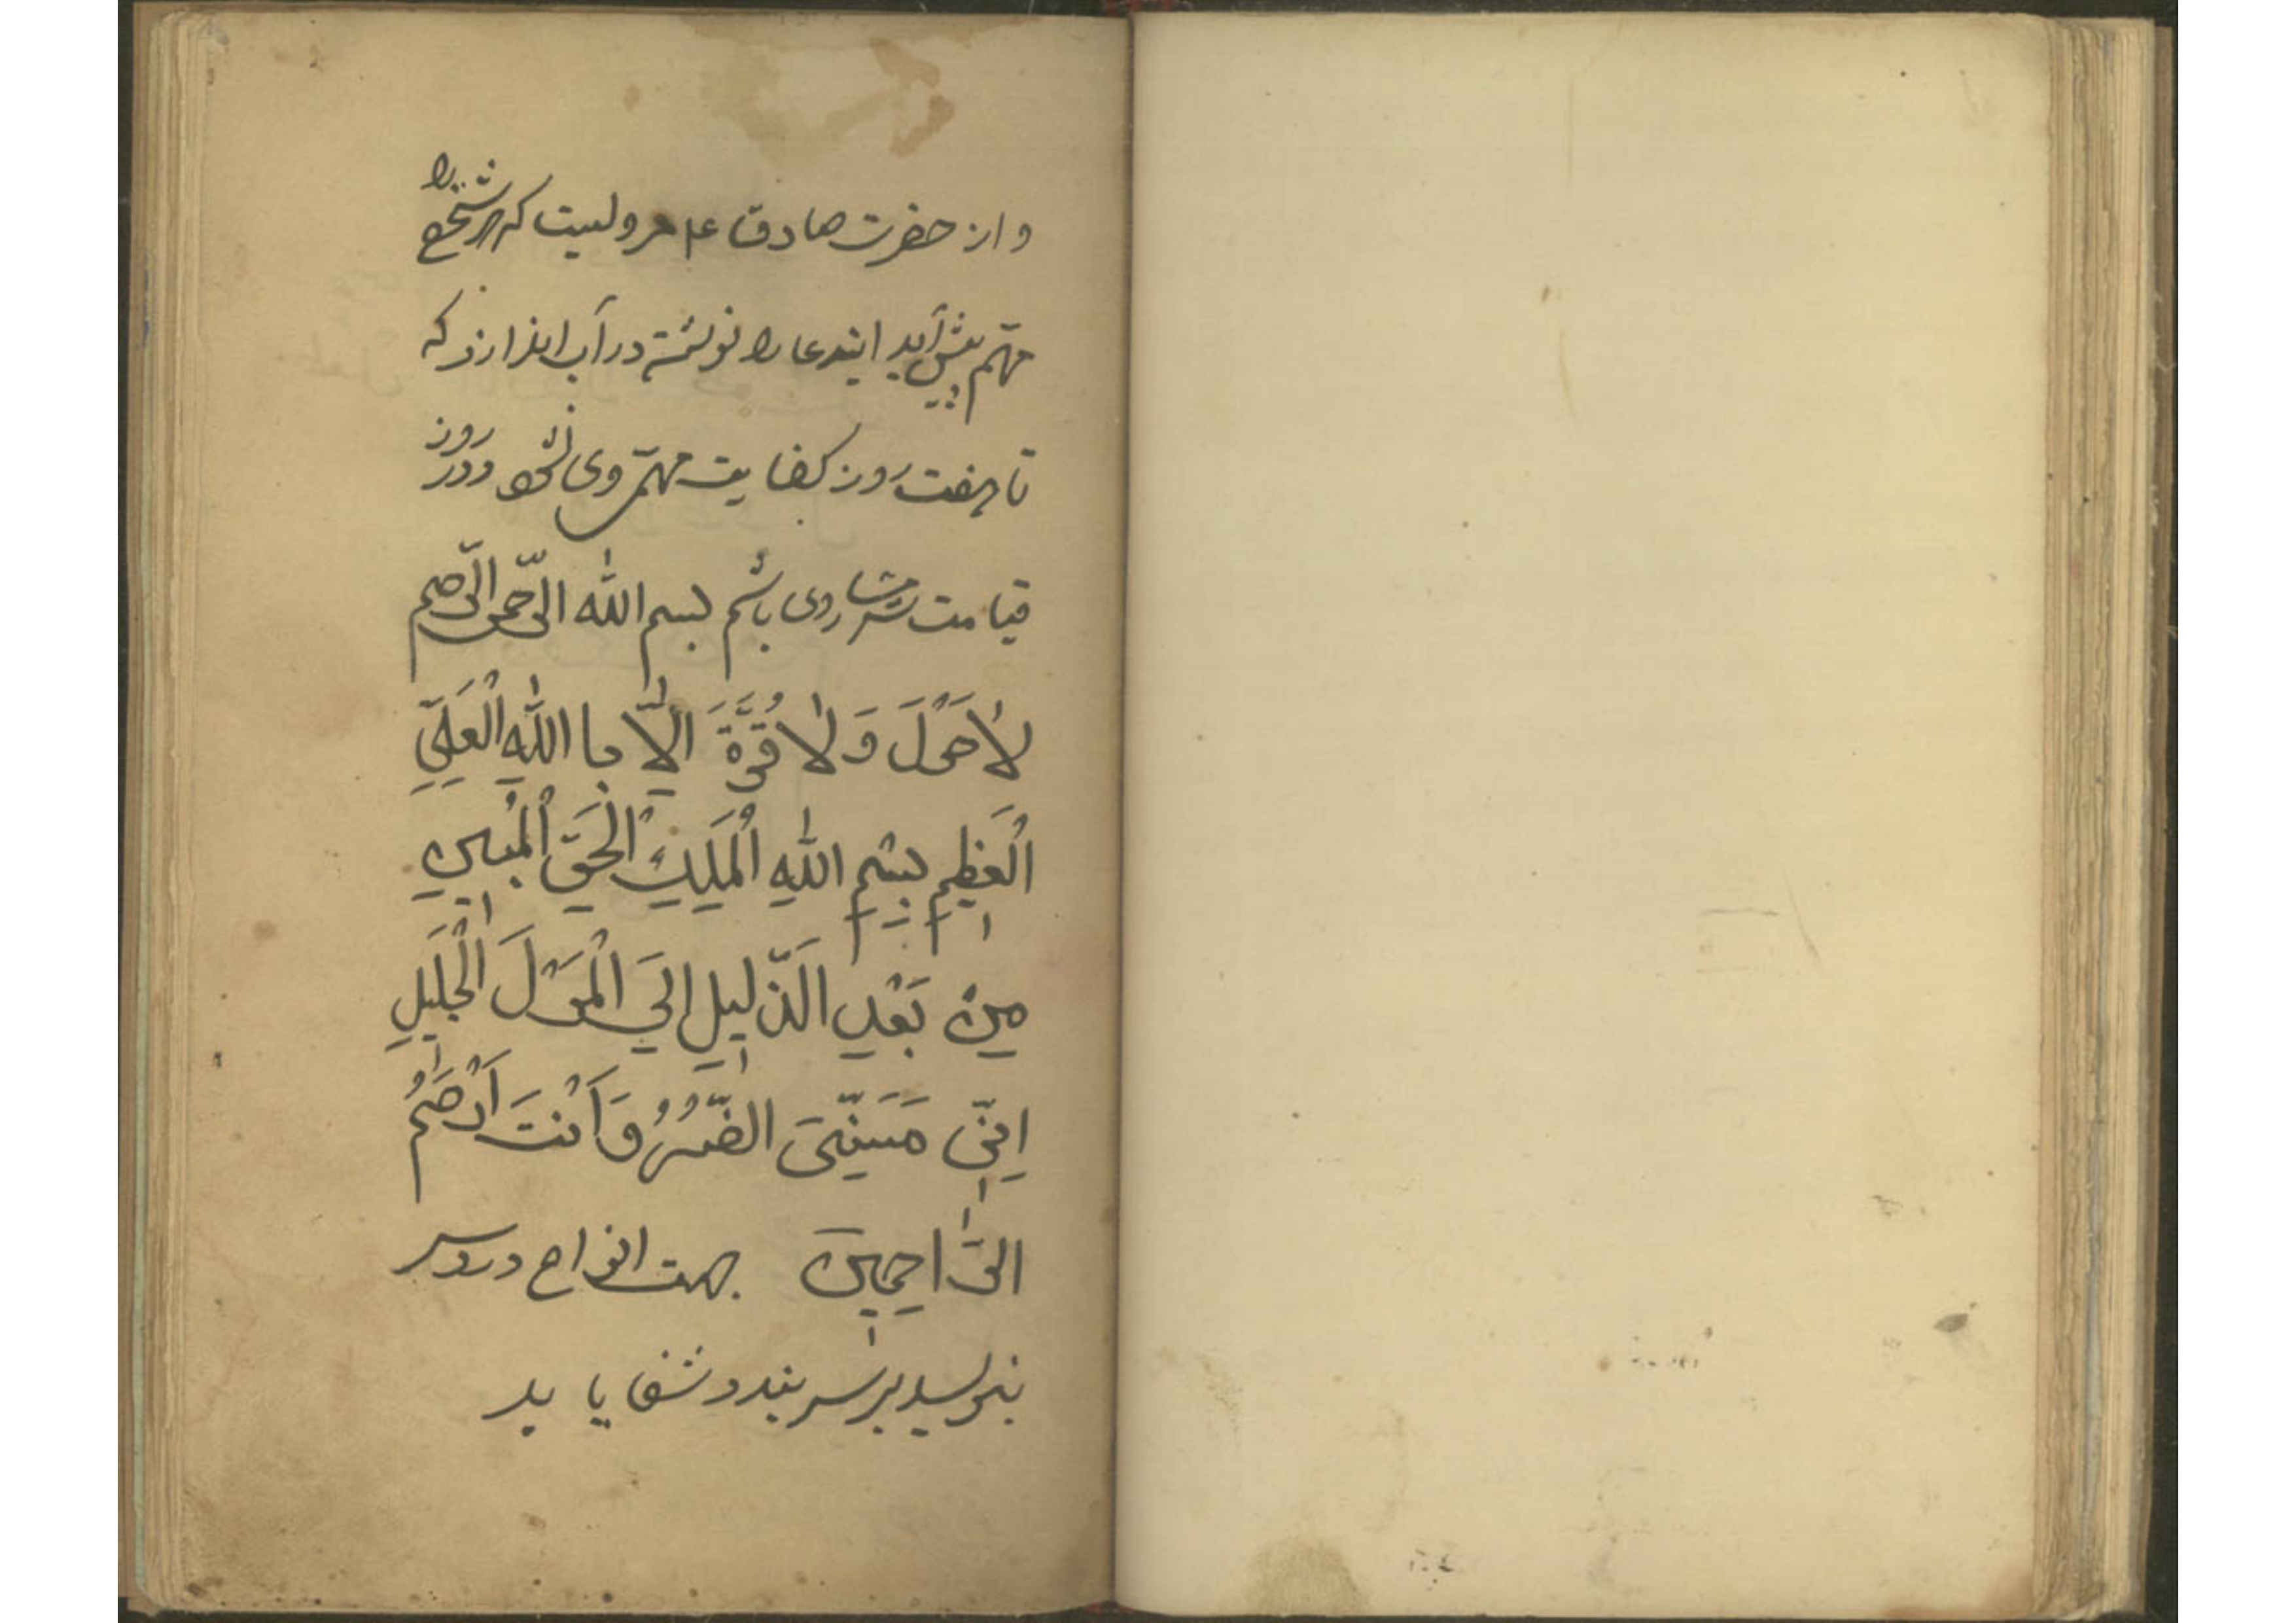 و از حضرت صادق ع م مرویست که هر شخصی را
مهّم پیش آید ایندعا را نوشته در آب اندازد که
تا هفت روز کفایت مهمّ وی نشود در روز
قیامت شرمسار وی باشم بسم الله الرّحمن الرّحیم
لاٰحَوْلَ وَلاٰ قُوَّةَ اِلّاٰ بِا اللّٰهِ الْعَلِیِّ
الْعَظیمِ بِسْمِ اللّٰهِ الْمَلِیكِ الْحَقِّ الْمُبینِ
مِنْ بَعْدِ الَذَّلیلِ اِلَی الْمَوْلَ الْجَلَیلِ
اِنّی مَسَنِّیَ الضُّرُ وَ اَنْتَ اَرْحَمُ
الرَّاحِمینَ جهت انواع درد سر
بنویسد بر سر بندد شفا یابد